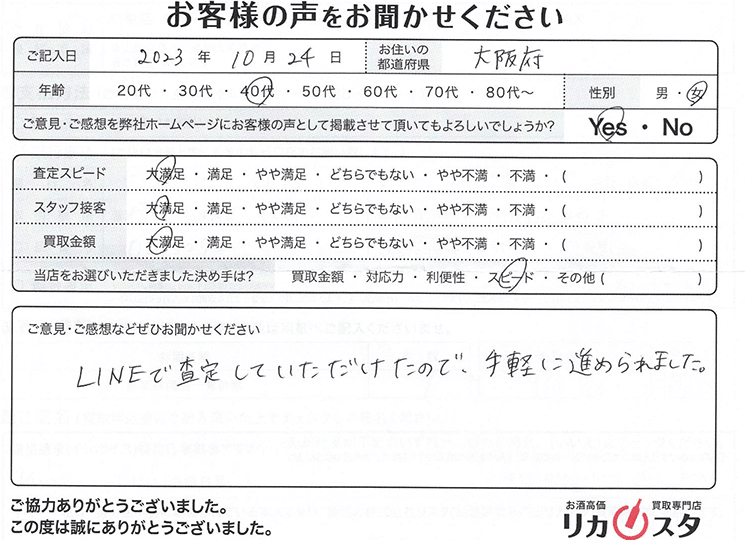 お客様の声をお聞かせください
ご記入日 2023 年 10 月 24 日 お住いの都道府県 大阪府
年齢 20代 ・ 30代 ・ 40代 ・ 50代 ・ 60代 ・ 70代 ・ 80代〜 性別 男 ・ 女
ご意見・ご感想を弊社ホームページにお客様の声として掲載させて頂いてもよろしいでしょうか? Yes ・ No
査定スピード 大満足 ・ 満足 ・ やや満足 ・ どちらでもない ・ やや不満 ・ 不満 ・ ( )
スタッフ接客 大満足 ・ 満足 ・ やや満足 ・ どちらでもない ・ やや不満 ・ 不満 ・ ( )
買取金額 大満足 ・ 満足 ・ やや満足 ・ どちらでもない ・ やや不満 ・ 不満 ・ ( )
当店をお選びいただきました決め手は? 買取金額 ・ 対応力 ・ 利便性 ・ スピード ・ その他 ( )
ご意見・ご感想などぜひお聞かせください
LINEで査定していただけたので、手軽に進められました。
ご協力ありがとうございました。
この度は誠にありがとうございました。
お酒高価 買取専門店
リカスタ